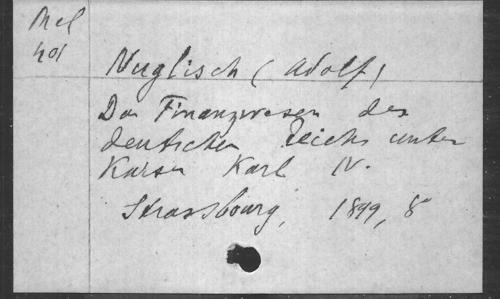 Mel
401
Nuglisch (Adolf)
Das Finanzwesen des
deutschen Reichs unter
Kaiser Karl IV.
Strassbourg, 1899, 8°